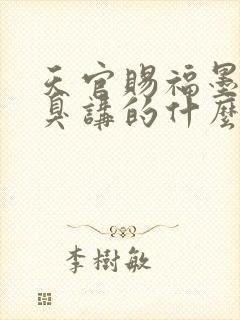 天官賜福墨
具講的什麼
李樹敏